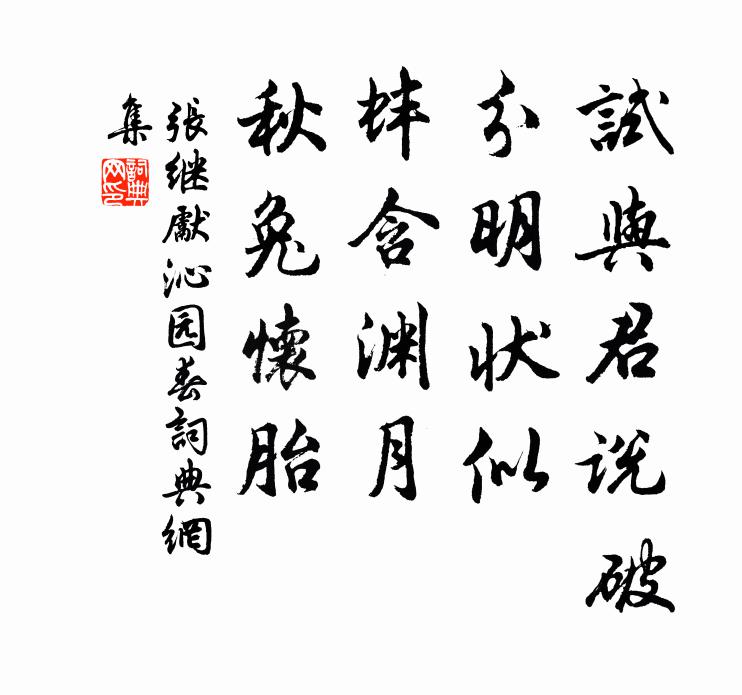 試與君說破
分明狀似
蚌含渊月
秋兔懷胎
張继獻沁园春詞典網
集
詞典
网印